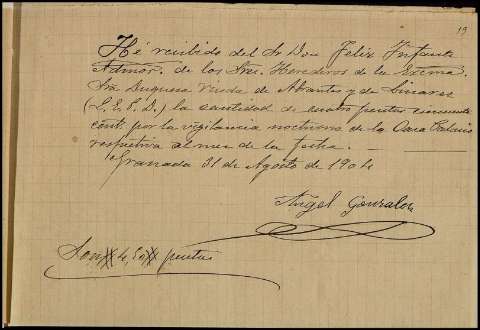 19
Hé recibido del Sr Don Felix Infante
Admor. de los Sres. Herederos de la Excma.
Sra. Duquesa Viuda de Abrantes y de Linares
(Q.E.P.D.) la cantidad de cuatro pesetas cincuenta
cent. por la vigilancia nocturna de la Casa Palacio
respectiva al mes de la fecha.
Granada 31 de Agosto de 1904
Angel Gonzalez
Son # 4,50 # pesetas